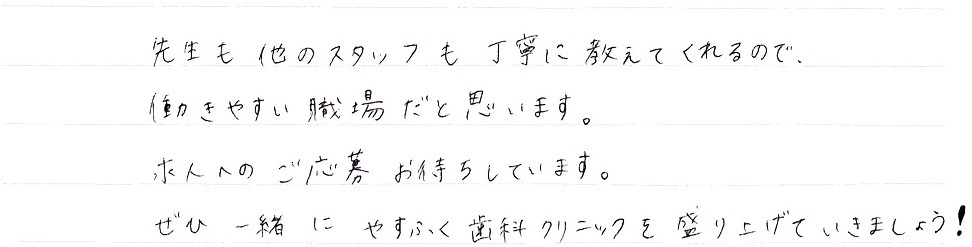 先生も他のスタッフも丁寧に教えてくれるので、
働きやすい職場だと思います。
求人へのご応募お待ちしています。
ぜひ一緒にやすふく歯科クリニックを盛り上げていきましょう!